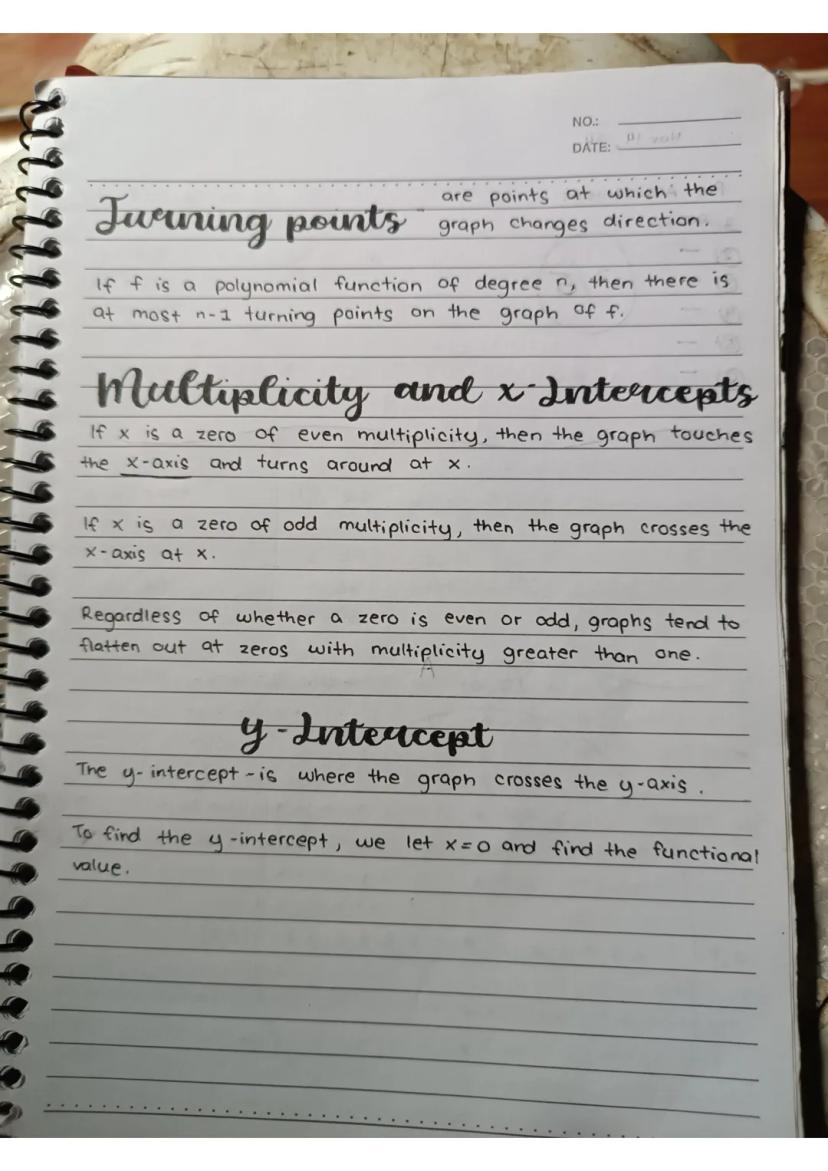 NO.:
DATE:
Turning points - are points at which the
graph changes direction.
If f is a polynomial function of degree n, then there is
at most n-1 turning points on the graph of f.
Multiplicity and x-Intercepts
If x is a zero of even multiplicity, then the graph touches
the x-axis and turns around at x.
If x is a zero of odd multiplicity, then the graph crosses the
x-axis at x.
Regardless of whether a zero is even or odd, graphs tend to
flatten out at zeros with multiplicity greater than one.
y-Intercept
The y-intercept-is where the graph crosses the y-axis.
To find the y-intercept, we let x=0 and find the functional
value.